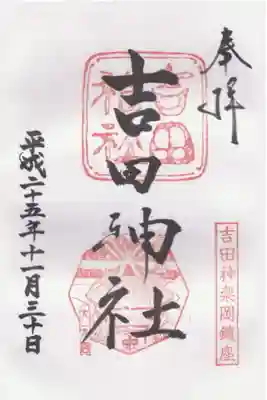 奉拝
吉田神楽岡鎮座
吉田神社
吉田
神社
平成二十五年十一月三十日